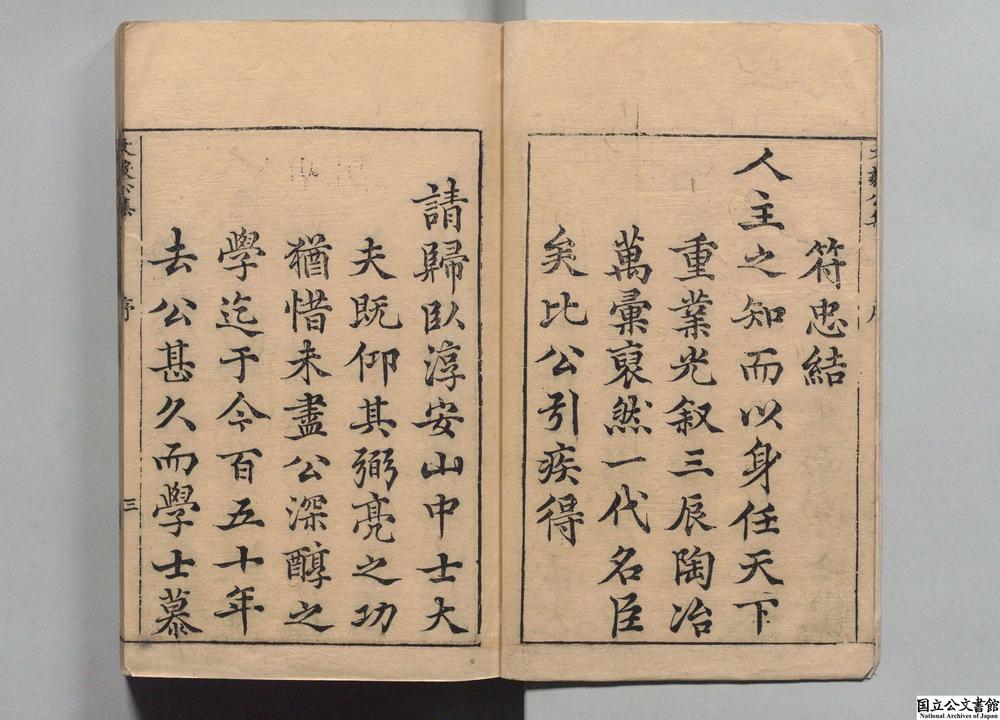 符忠結
人主之知而以身任天下
重業光叙三辰陶冶
萬彙裒然一代名臣
矣比公引疾得
請歸臥淳安山中士大
夫既仰其弼亮之功
猶惜未盡公深醇之
學迄于今百五十年
去公甚久而學士慕
文毅公集
序
三
国立公文書館
National Archives of Japan